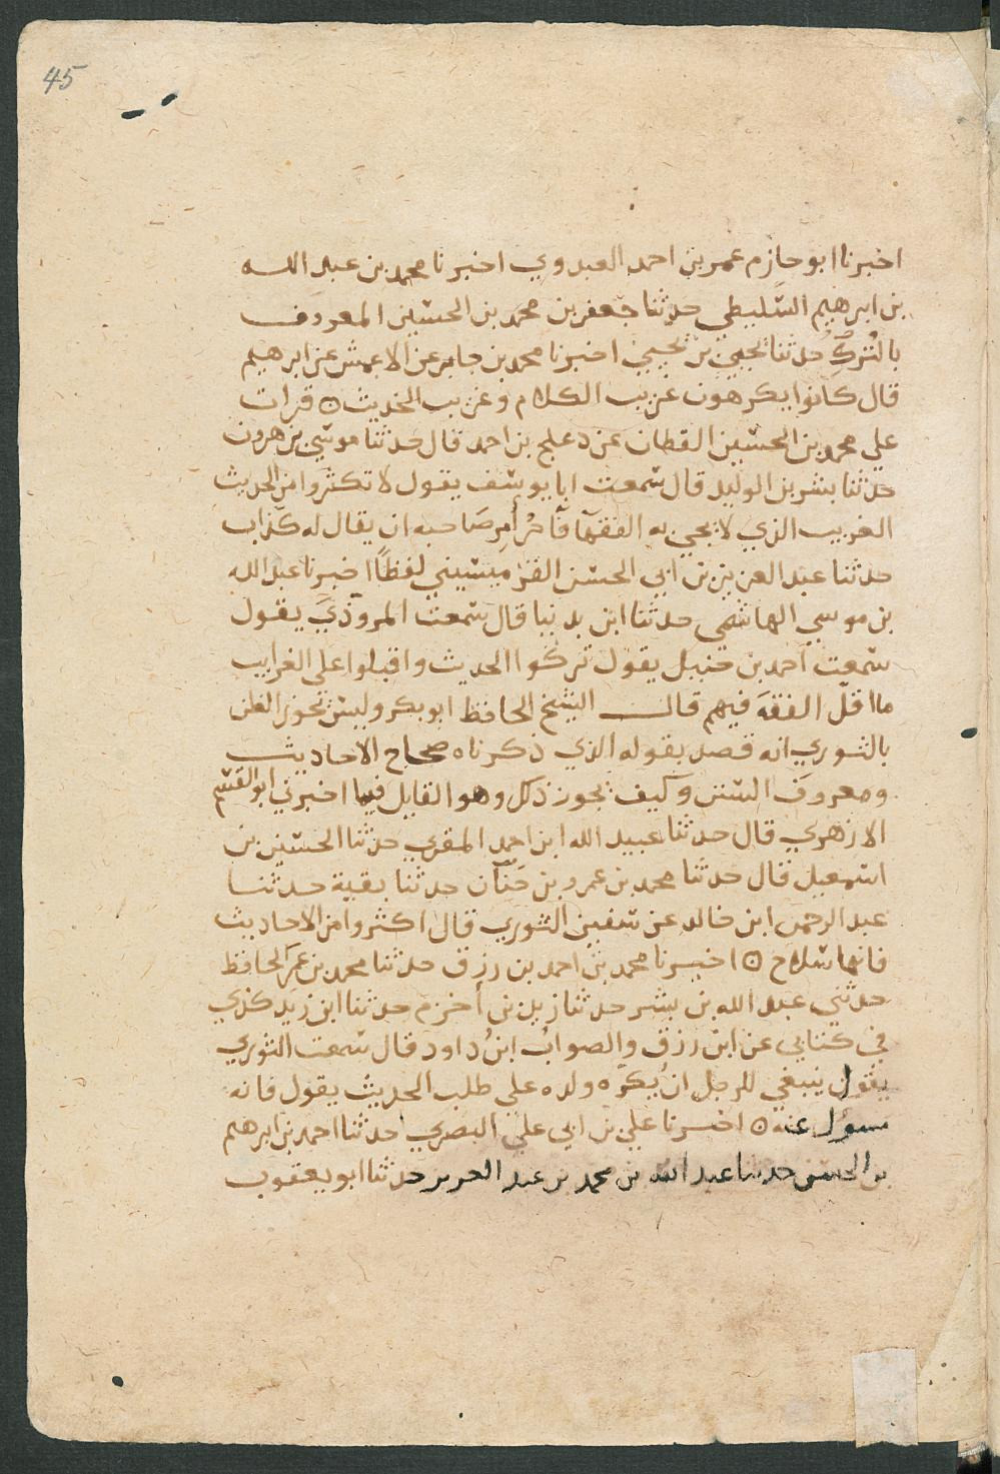 45
اخبرنا ابو حازم عمر بن احمد العبدوي اخبرنا محمد بن عبد الله
بن ابرهيم السليطي حدثنا جعفر بن محمد بن الحسين المعروف
بالترك حدثنا يحيي بن يحيي اخبرنا محمد بن جابر عن الاعمش عن ابرهيم
قال كانوا يكرهون غريب الكلام وغريب الحديث ٥ قرات
علي محمد بن الحسين القطان عن دعلج بن احمد قال حدثنا موسي بن هرون
حدثنا بشر بن الوليد قال سمعت ابا يوسف يقول لا تكثروا من الحديث
الغريب الذي لا يجي به الفقهآ فآخرُ أمرِ صَاحبه ان يقال له كذاب
حدثنا عبد العزيز بن ابي الحسن القرميسيني لفظًا اخبرنا عبد الله
بن موسي الهاشمي حدثنا ابن بدينا قال سمعت المروذيَ يقول
سمعت احمد بن حنبل يقول تركوا الحديث واقبلوا على الغرايب
ما اقلّ الفقهَ فيهم قال الشيخ الحافظ ابو بكر وليس نجوز الظن
بالثوري انه قصد بقوله الذي ذكرناه صحاح الاحاديث
ومعروفَ السنن وكيف يجوز ذلك وهو القايل فيما اخبرني ابو القسم
الازهري قال حدثنا عبيد الله ابن احمد المقري حدثنا الحسين بن
اسمعيل قال حدثنا محمد بن عمرو بن حَنّان حدثنا بقية حدثنا
عبد الرحمن ابن خالد عن سفين الثوري قال اكثروا من الاحاديث
فانها سلاح ٥ اخبرنا محمد بن احمد بن رزق حدثنا محمد بن عمر الحافظ
حدثني عبد الله بن بشر حدثنا زيد بن أخزم حدثنا ابن زيد كذي
في كتابي عن ابن رزق والصوابُ ابنُ داود قال سمعت الثوري
يقول ينبغي للرجل ان يُكرَه ولده على طلب الحديث يقول فانه
مسوُل عنه ٥ اخبرنا علي بن ابي علي البصري حدثنا احمد بن ابرهيم
بن الحسن حدثنا عبد الله بن محمد بن عبد العزيز حدثنا ابو يعقوب